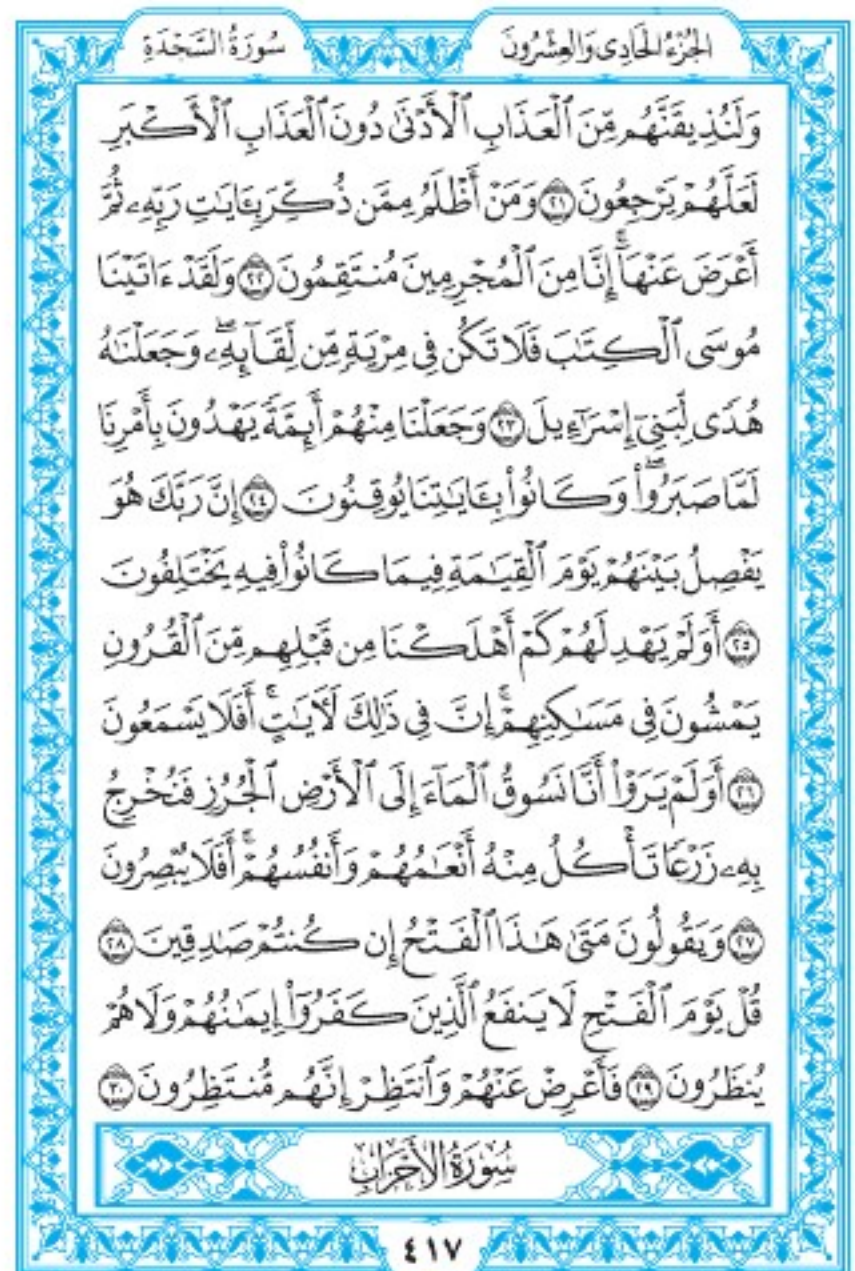 الجُزْءُ الحَادِى وَالعِشْرُونَ
سُورَةُ السَّجْدَةِ
وَلَنُذِيقَنَّهُم مِّنَ ٱلْعَذَابِ ٱلْأَدْنَىٰ دُونَ ٱلْعَذَابِ ٱلْأَكْبَرِ
لَعَلَّهُمْ يَرْجِعُونَ ٢١ وَمَنْ أَظْلَمُ مِمَّن ذُكِّرَ بِـَٔايَـٰتِ رَبِّهِۦ ثُمَّ
أَعْرَضَ عَنْهَآ ۚ إِنَّا مِنَ ٱلْمُجْرِمِينَ مُنتَقِمُونَ ٢٢ وَلَقَدْ ءَاتَيْنَا
مُوسَى ٱلْكِتَـٰبَ فَلَا تَكُن فِى مِرْيَةٍ مِّن لِّقَآئِهِۦ ۖ وَجَعَلْنَـٰهُ
هُدًى لِّبَنِىٓ إِسْرَٰٓءِيلَ ٢٣ وَجَعَلْنَا مِنْهُمْ أَئِمَّةً يَهْدُونَ بِأَمْرِنَا
لَمَّا صَبَرُوا۟ ۖ وَكَانُوا۟ بِـَٔايَـٰتِنَا يُوقِنُونَ ٢٤ إِنَّ رَبَّكَ هُوَ
يَفْصِلُ بَيْنَهُمْ يَوْمَ ٱلْقِيَـٰمَةِ فِيمَا كَانُوا۟ فِيهِ يَخْتَلِفُونَ
٢٥ أَوَلَمْ يَهْدِ لَهُمْ كَمْ أَهْلَكْنَا مِن قَبْلِهِم مِّنَ ٱلْقُرُونِ
يَمْشُونَ فِى مَسَـٰكِنِهِمْ ۚ إِنَّ فِى ذَٰلِكَ لَـَٔايَـٰتٍ ۖ أَفَلَا يَسْمَعُونَ
٢٦ أَوَلَمْ يَرَوْا۟ أَنَّا نَسُوقُ ٱلْمَآءَ إِلَى ٱلْأَرْضِ ٱلْجُرُزِ فَنُخْرِجُ
بِهِۦ زَرْعًا تَأْكُلُ مِنْهُ أَنْعَـٰمُهُمْ وَأَنفُسُهُمْ ۖ أَفَلَا يُبْصِرُونَ
٢٧ وَيَقُولُونَ مَتَىٰ هَـٰذَا ٱلْفَتْحُ إِن كُنتُمْ صَـٰدِقِينَ ٢٨
قُلْ يَوْمَ ٱلْفَتْحِ لَا يَنفَعُ ٱلَّذِينَ كَفَرُوٓا۟ إِيمَـٰنُهُمْ وَلَا هُمْ
يُنظَرُونَ ٢٩ فَأَعْرِضْ عَنْهُمْ وَٱنتَظِرْ إِنَّهُم مُّنتَظِرُونَ ٣٠
سُورَةُ الأَحْزَابِ
٤١٧